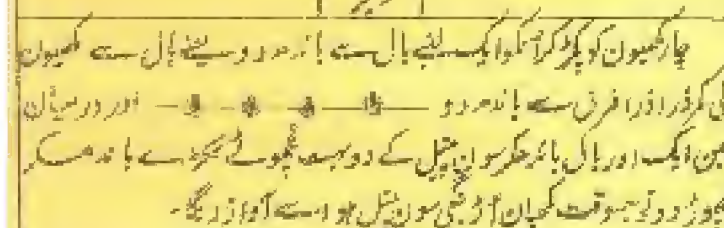 چار مکھیون کو پکڑ کر انکو ایک لنبے بال سے باندھ دو یعنے بال سے مکھیون
کی کمر ذرا ذرا فرق سے باندھ دو — اور درمیان
مین ایک اور بال باندھکر سون پیتل کے دو بہت چھوٹے ٹکڑے باندھکر
چھوڑ دو تو جسوقت مکھیان اُڑینگی سون پیتل ہوا سے آواز دیگا۔